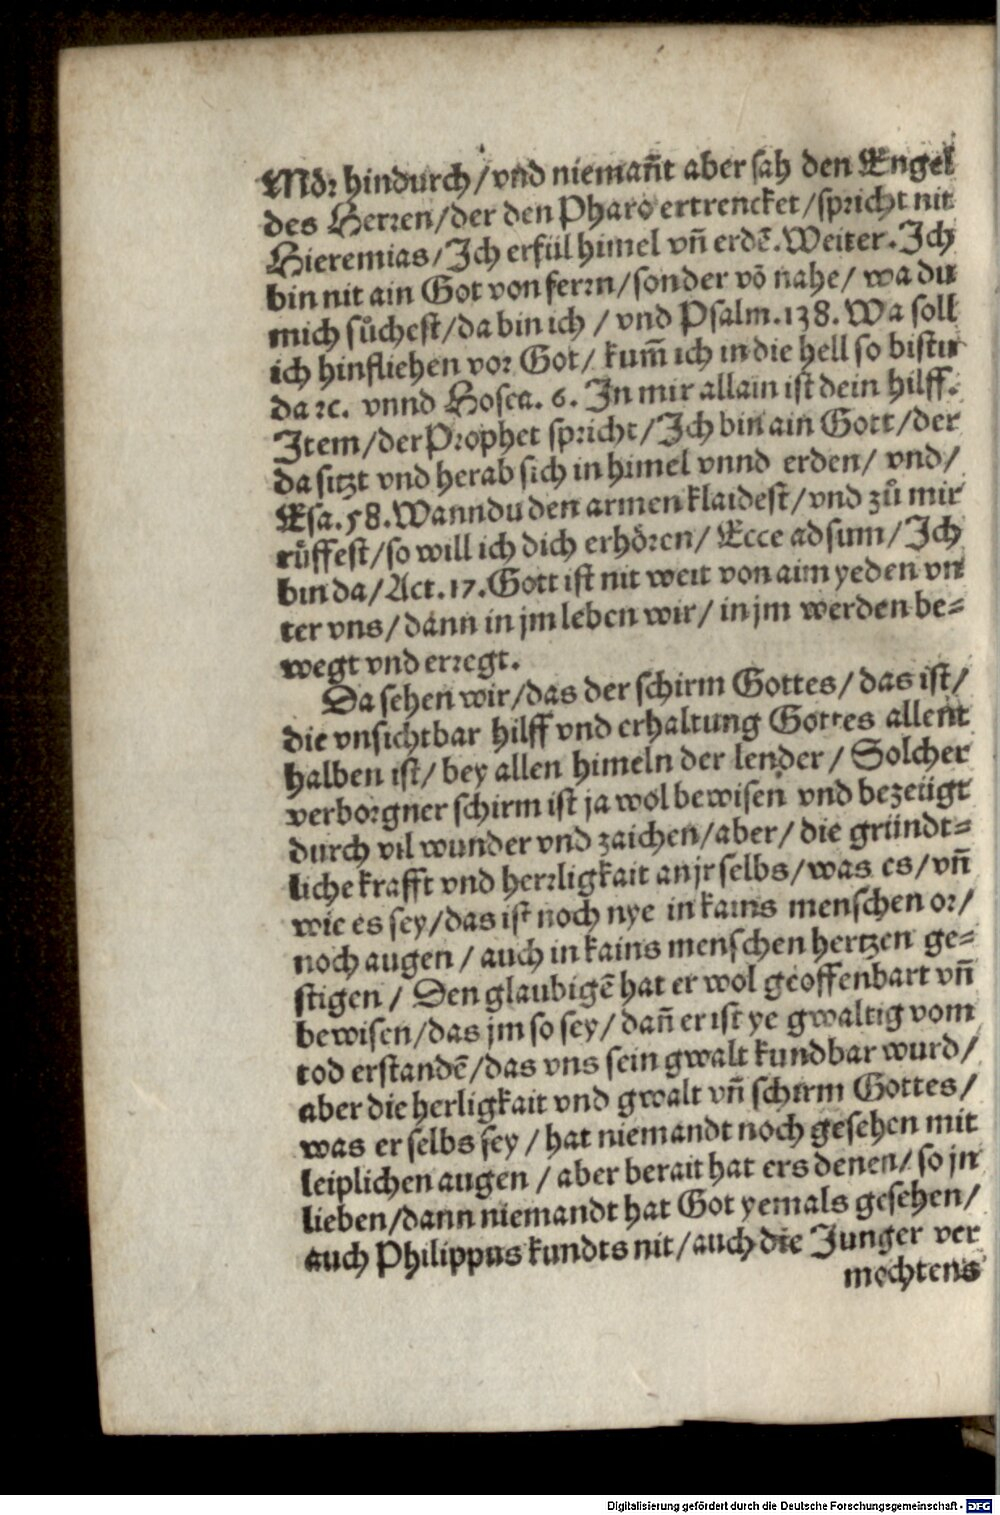 Mör hindurch/vnd niemañt aber sah den Engel
des Herren/der den Pharo ertrencket/spricht nit
Hieremias/Ich erfül himel vñ erdē. Weiter. Ich
bin nit ain Got von ferrn/sonder vō nahe/ wa du
mich sůchest/da bin ich / vnd Psalm.138. Wa soll
ich hinfliehen vor Got/ kum̃ ich in die hell so bistu
da ꝛc. vnnd Hosea. 6. In mir allain ist dein hilff.
Item/der Prophet spricht/Ich bin ain Gott/der
da sitzt vnd herab sich in himel vnnd erden/ vnd/
Esa.58. Wann du den armen klaidest/vnd zů mir
růffest/so will ich dich erhören/ Ecce adsum/Ich
bin da/Act.17. Gott ist nit weit von aim yeden vn
ter vns/dann in jm leben wir/ in jm werden be⸗
wegt vnd erregt.
Da sehen wir/das der schirm Gottes/das ist/
die vnsichtbar hilff vnd erhaltung Gottes allent
halben ist/bey allen himeln der lender/ Solcher
verborgner schirm ist ja wol bewisen vnd bezeügt
durch vil wunder vnd zaichen/aber/ die gründt⸗
liche krafft vnd herrligkait an jr selbs/was es/vñ
wie es sey/das ist noch nye in kains menschen or/
noch augen / auch in kains menschen hertzen ge⸗
stigen / Den glaubigē hat er wol geoffenbart vñ
bewisen/das jm so sey/ dañ er ist ye gwaltig vom
tod erstandē/das vns sein gwalt kundbar wurd/
aber die herligkait vnd gwalt vñ schirm Gottes/
was er selbs sey / hat niemandt noch gesehen mit
leiplichen augen / aber berait hat ers denen/ so jn
lieben/dann niemandt hat Got yemals gesehen/
auch Philippus kundts nit/auch die Junger ver
mochtens
Digitalisierung gefördert durch die Deutsche Forschungsgemeinschaft - DFG